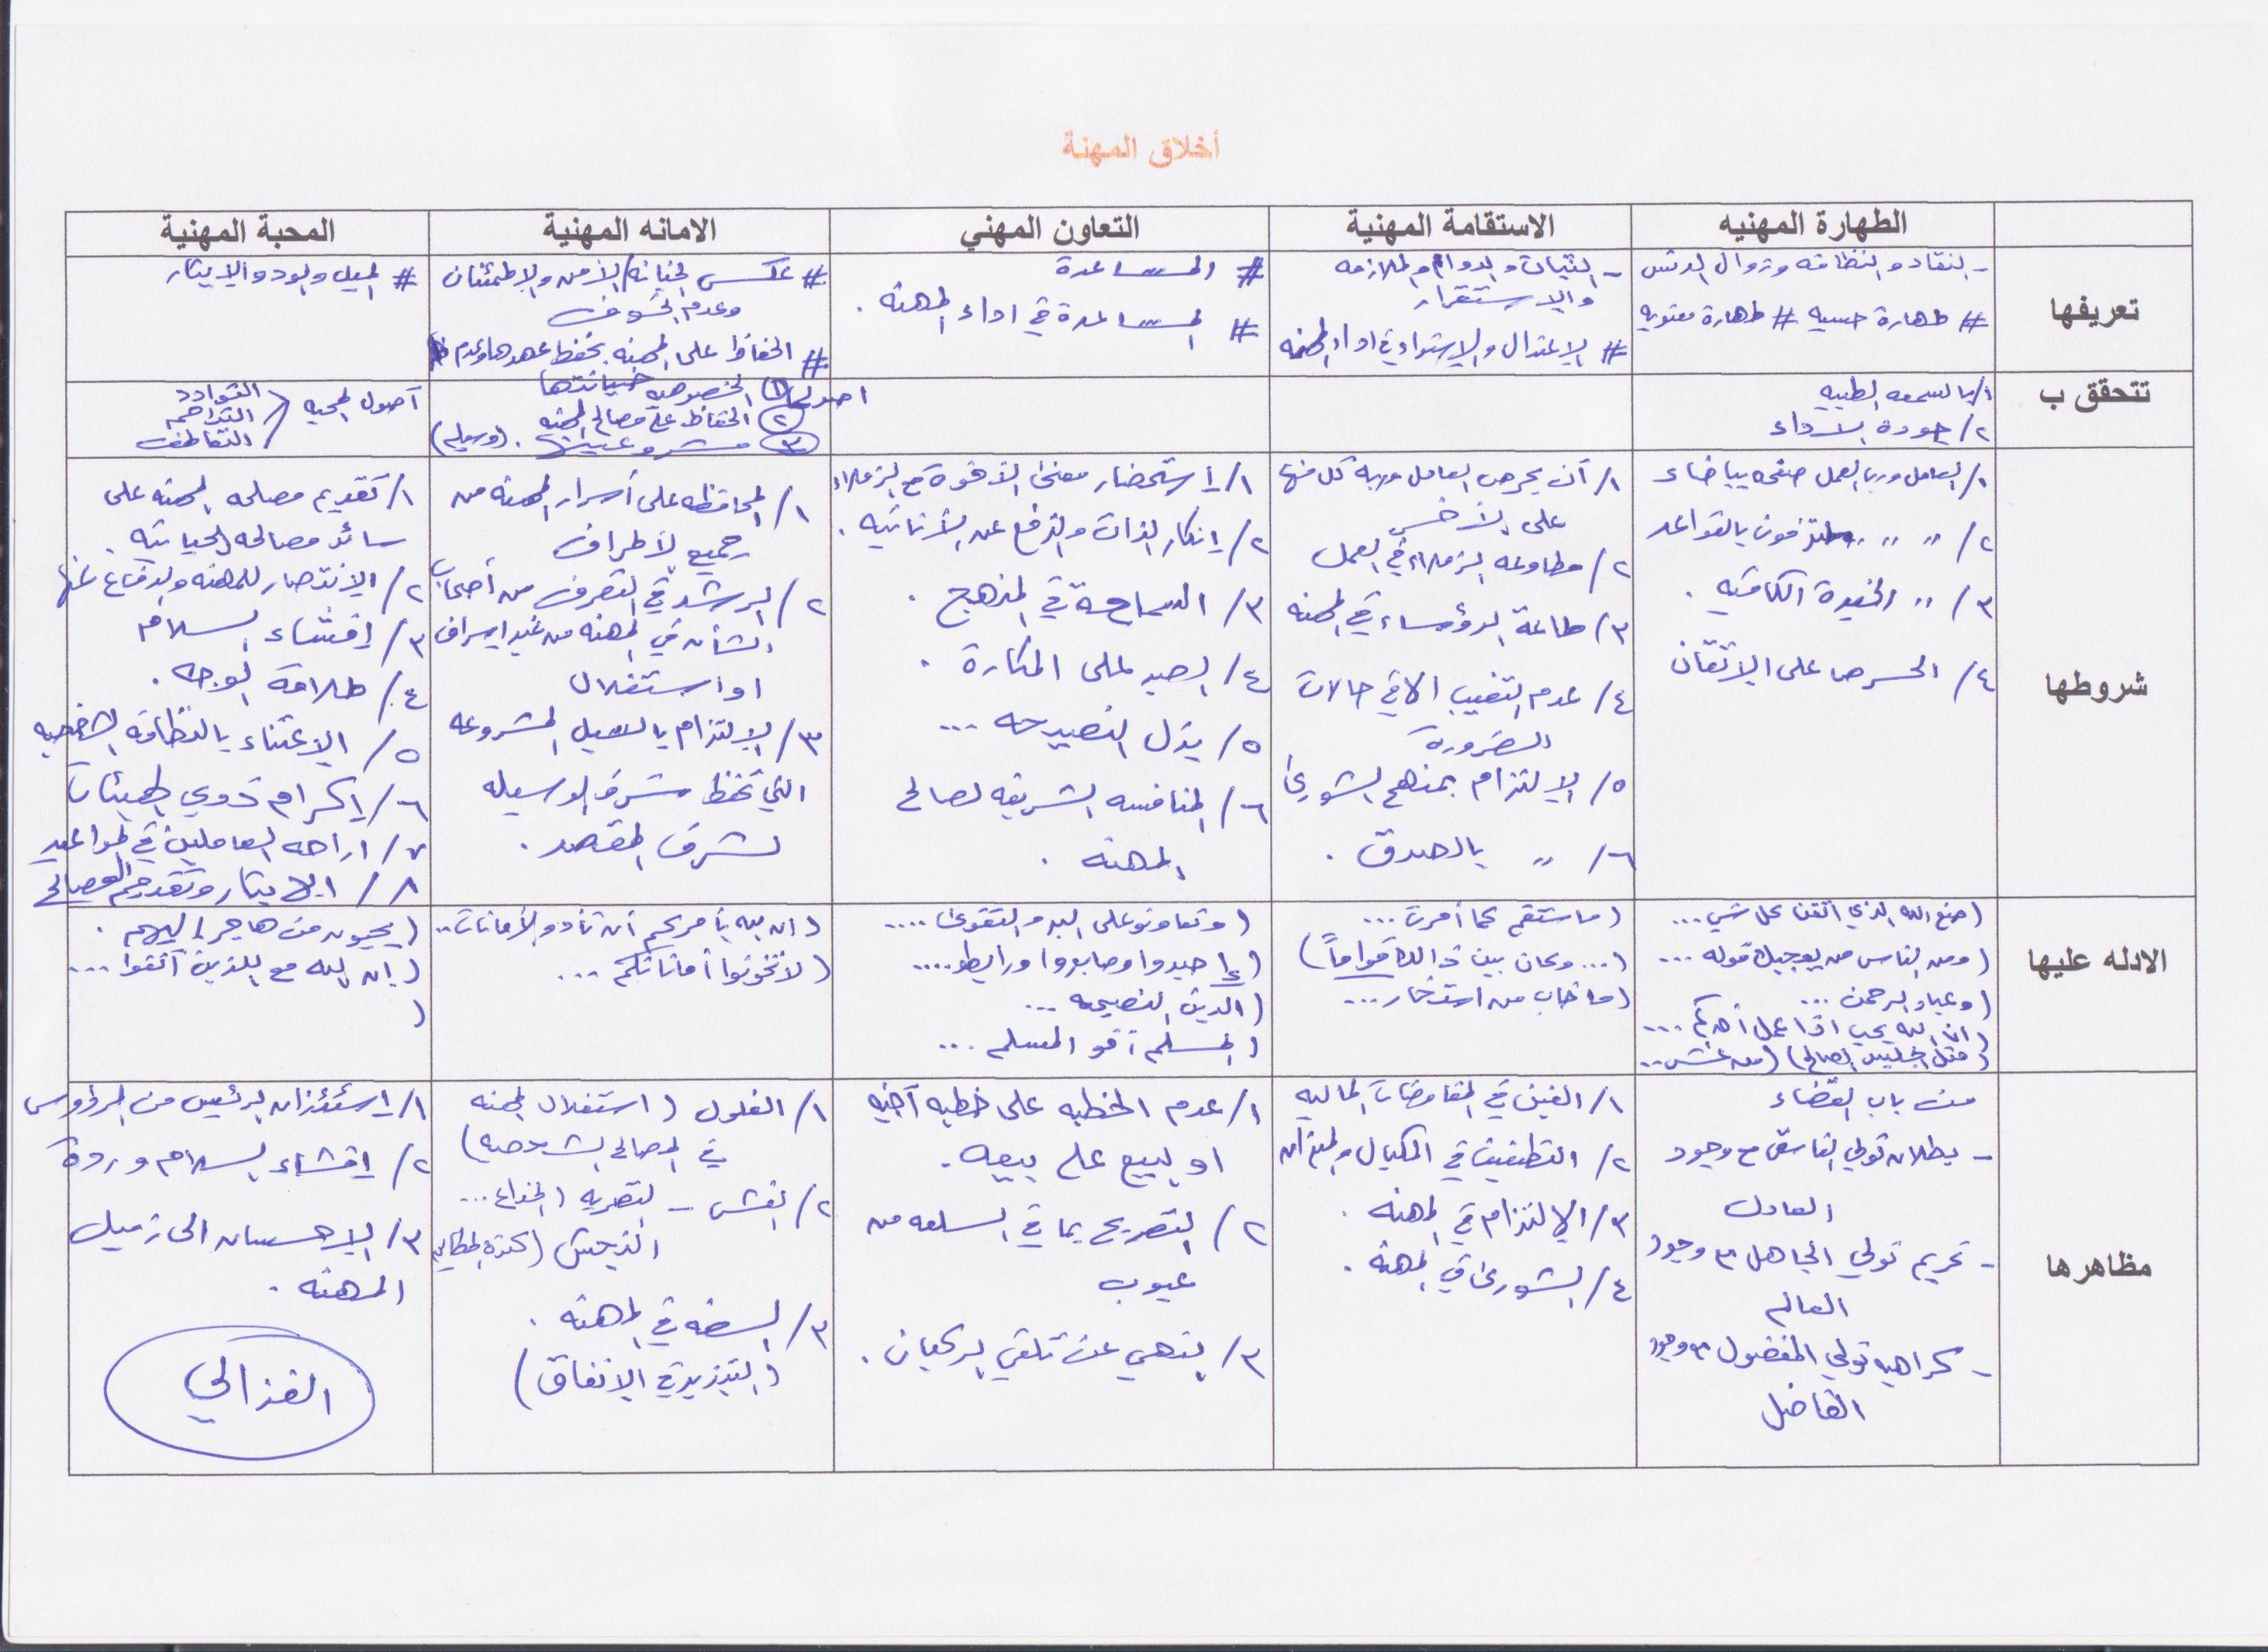 أخلاق المهنة
الطهارة المهنيه
الاستقامة المهنية
التعاون المهني
الامانه المهنية
المحبة المهنية
تعريفها
- النقاء والنظافه وزوال الدنس
# طهارة حسيه # طهارة معنويه
- الثبات والدوام والملازمه
والاستقرار
# الاعتدال والاستواء في اداء المهنه
# المساعدة
# المساعدة في اداء المهنه .
# عكس الخيانه / الأمن والاطمئنان
وعدم الخوف
# الحفاظ على المهنه بحفظ عهدها وعدم
خيانتها
# الميل والود والايثار
تتحقق ب
١/ بالسمعه الطيبه
٢/ جودة الاداء
اصولها ١ الخصوصيه
٢ الحفاظ على مصالح المهنه
٣ مشروعيتها . (وسيله)
أصول المحبه
التوادد
التراحم
التعاطف
شروطها
١/ العامل ورب العمل صفحه بيضاء
٢/ " " " ملتزمون بالقواعد
٣/ " الخبرة الكافيه .
٤/ الحرص على الاتقان
١/ أن يحرص العامل وربه كل منها
على الآخر
٢/ مطاوعه الزملاء في العمل
٣/ طاعة الرؤساء في المهنه
٤/ عدم التغيب الا في حالات
الضرورة
٥/ الالتزام بمنهج الشورى
٦/ " بالصدق .
١/ إستحضار معنى الأخوة مع الزملاء
٢/ إنكار الذات والترفع عن الأنانيه .
٣/ السماحة في المنهج .
٤/ الصبر على المكارة .
٥/ بذل النصيحه ...
٦/ المنافسه الشريفه لصالح
المهنه .
١/ المحافظه على أسرار المهنه من
جميع الأطراف
٢/ الرشد في التصرف من أصحاب
الشأن في المهنه من غير اسراف
او استغلال
٣/ الالتزام بالسبل المشروعه
التي تحفظ شرف الوسيله
لشرف المقصد .
١/ تقديم مصلحه المهنه على
سائر مصالحه الحياتيه .
٢/ الانتصار للمهنه والدفاع عنها
٣/ إفشاء السلام
٤/ طلاقة الوجه .
٥/ الاعتناء بالنظافه الشخصيه
٦/ إكرام ذوي الهيئات
٧/ اراحه العاملين في المواعيد
٨/ الايثار وتقديم المصالح
الادله عليها
(صنع الله الذي أتقن كل شي ...
(ومن الناس من يعجبك قوله ...
(وعباد الرحمن ...
(ان الله يحب اذا عمل أحدكم ...
(مثل الجليس الصالح) (من غش ..
(فاستقم كما أمرت ...
(... وكان بين ذالك قواماً)
(ما خاب من استخار ...
(وتعاونو على البر والتقوى ....
(إصبروا وصابروا ورابطو ....
(الدين النصيحه ...
(المسلم أخو المسلم ...
(ان الله يأمركم أن تأدو الأمانات ..
(لا تخونوا أماناتكم ...
(يحبون من هاجر إليهم .
(إن الله مع للذين أتقوا ...
(
مظاهرها
من باب القضاء
- بطلان تولي الفاسق مع وجود
العادل
- تحريم تولي الجاهل مع وجود
العالم
- كراهيه تولي المفضول مع وجود
الفاضل
١/ الغبن في المفاوضات الماليه
٢/ التطفيف في المكيال والميزان
٣/ الالتزام في المهنه .
٤/ الشورى في المهنه .
١/ عدم الخطبه على خطبه أخيه
او البيع على بيعه .
٢/ التصريح بما في السلعه من
عيوب
٣/ ينهي عن تلقي الركبان .
١/ الغلول (استغلال المهنه
في المصالح الشخصيه)
٢/ الغش - التصريه (الخداع ...
٣/ السفه في المهنه .
(التبذير في الانفاق)
١/ إستئذان الرئيس من المرؤوس
٢/ إفشاء السلام وردة
٣/ الاحسان الى زميل
المهنه .
الغزالي